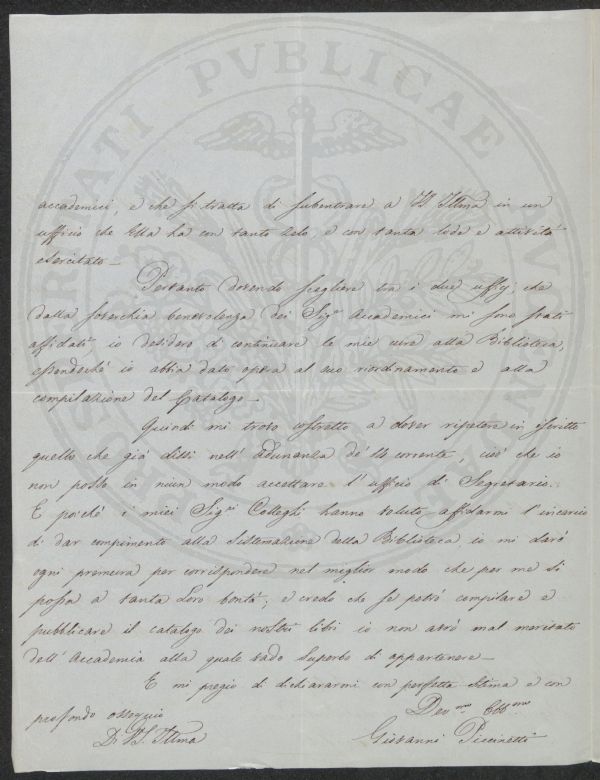 PROSPERITATI PVBLICAE AVGENDAE
accademici, e che si tratta di subentrare a VS Illma in un
ufficio che Ella ha con tanto zelo, e con tanta lode e attività
esercitato_
Pertanto dovendo scegliere tra i due uffizj che
dalla soverchia benevolenza dei Sigri Accademici mi sono stati
affidati, io desidero di continuare le mie cure alla Biblioteca,
essendoché io abbia dato opera al suo riordinamento e alla
compilazione del Catalogo_
Quindi mi trovo costretto a dover ripetere in iscritto
quello che già dissi nell' adunanza de' 14 corrente, cioè che io
non posso in niun modo accettare l'ufficio di Segretario.
E poiché i miei Sigri Colleghi hanno voluto affidarmi l'incarico
di dar compimento alla sistemazione della Biblioteca io mi darò
ogni premura per corrispondere nel miglior modo che per me si
possa a tanta Loro bontà; e credo che se potrò compilare e
pubblicare il catalogo dei nostri libri io non avrò mal meritato
dell' Accademia alla quale vado superbo di appartenere_
E mi pregio di dichiararmi con perfetta stima e con
profondo ossequio
Di VS. Illma
Devmo Obbmo
Giovanni Piccinetti